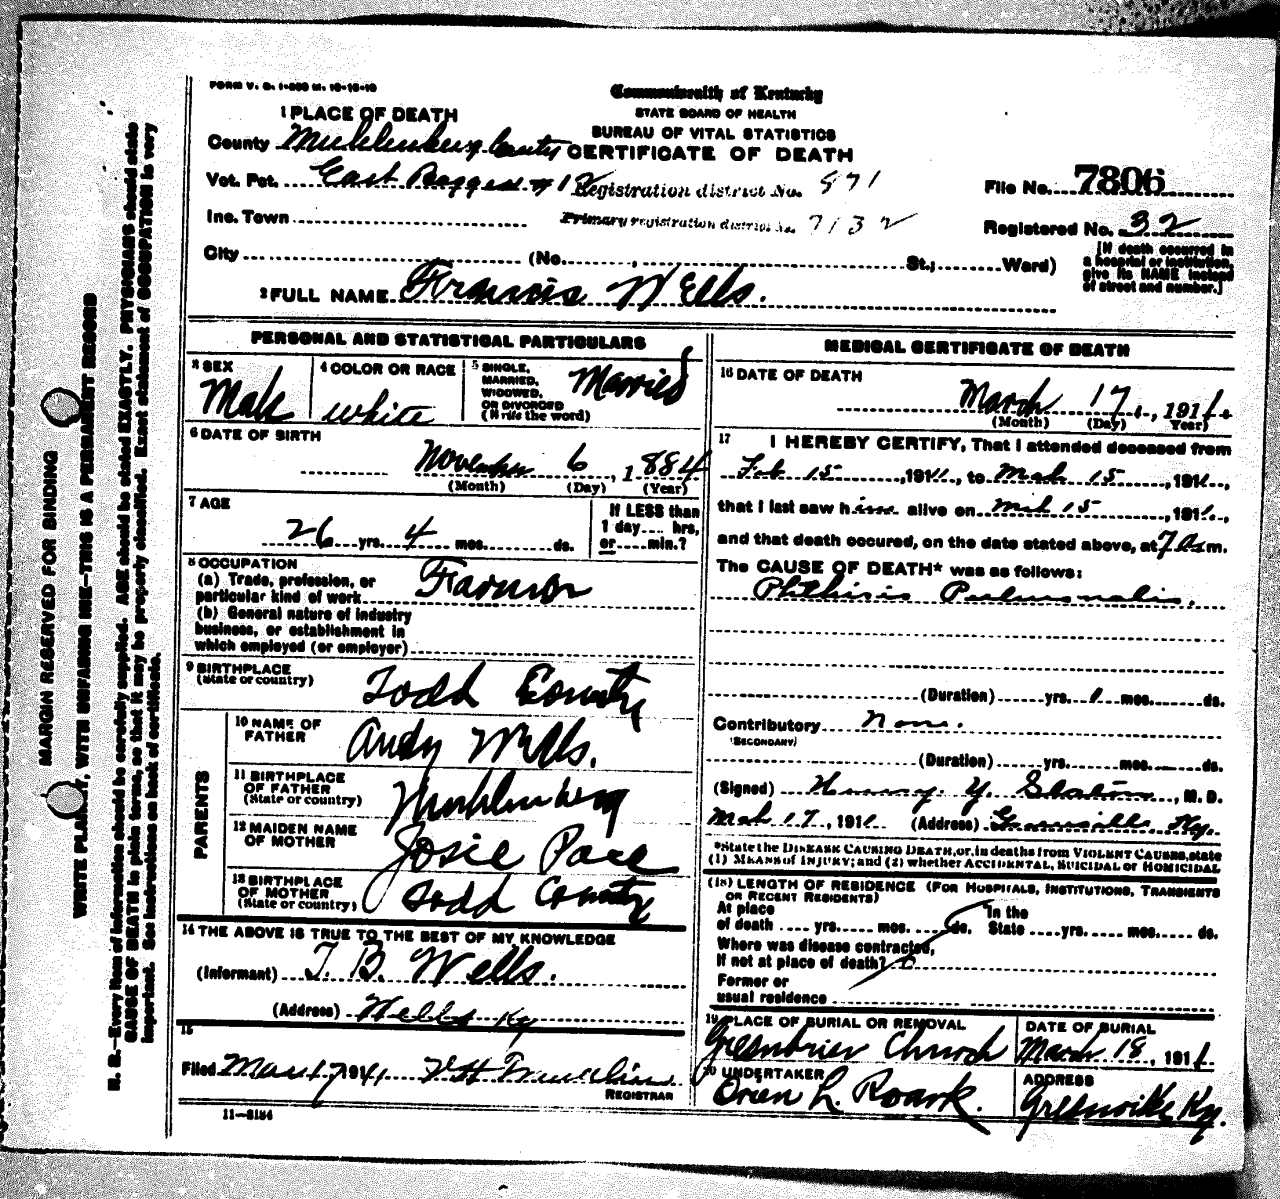 FORM V. S. 1-300 M. 10-18-10
Commonwealth of Kentucky
STATE BOARD OF HEALTH
BUREAU OF VITAL STATISTICS
CERTIFICATE OF DEATH
1 PLACE OF DEATH
County Muhlenberg County
Vot. Pct. East #12 Registration district No. 871
File No. 7806
Inc. Town Primary registration district No. 7132
Registered No. 32
City (No. , St.; Ward)
[If death occurred in
a hospital or institution,
give its NAME instead
of street and number.]
2 FULL NAME Francis Wells.
PERSONAL AND STATISTICAL PARTICULARS
3 SEX
Male
4 COLOR OR RACE
white
5 SINGLE,
MARRIED,
WIDOWED,
OR DIVORCED
(Write the word)
Married
6 DATE OF BIRTH
November 6, 1884
(Month) (Day) (Year)
7 AGE
26 yrs. 4 mos. ds.
If LESS than
1 day.... hrs,
or.....min.?
8 OCCUPATION
(a) Trade, profession, or
particular kind of work Farmer
(b) General nature of industry
business, or establishment in
which employed (or employer)
9 BIRTHPLACE
(State or country)
Todd County
PARENTS
10 NAME OF
FATHER
Andy Wells.
11 BIRTHPLACE
OF FATHER
(State or country)
Muhlenberg
12 MAIDEN NAME
OF MOTHER
Josie Pace
13 BIRTHPLACE
OF MOTHER
(State or country)
Todd County
14 THE ABOVE IS TRUE TO THE BEST OF MY KNOWLEDGE
(Informant) T. B. Wells.
(Address) Wells Ky
15
Filed Mar 17 1911
REGISTRAR
11—3184
MEDICAL CERTIFICATE OF DEATH
16 DATE OF DEATH
March 17, 1911
(Month) (Day) (Year)
17 I HEREBY CERTIFY, That I attended deceased from
Feb 15, 1911, to Mch 15, 1911,
that I last saw him alive on Mch 15, 1911,
and that death occured, on the date stated above, at 7 A m.
The CAUSE OF DEATH* was as follows:
Phthisis Pulmonalis.
(Duration) yrs. 1 mos. ds.
Contributory None.
(SECONDARY)
(Duration) yrs. mos. ds.
(Signed) Henry Y. Slaton, M. D.
Mch 17, 1911 (Address) Greenville Ky.
*State the DISEASE CAUSING DEATH, or, in deaths from VIOLENT CAUSES, state
(1) MEANS of INJURY; and (2) whether ACCIDENTAL, SUICIDAL or HOMICIDAL
(18) LENGTH OF RESIDENCE (FOR HOSPITALS, INSTITUTIONS, TRANSIENTS
OR RECENT RESIDENTS)
At place
of death .... yrs..... mos. .... ds.
In the
State ....yrs..... mos..... ds.
Where was disease contracted,
If not at place of death?
Former or
usual residence
19 PLACE OF BURIAL OR REMOVAL
Greenbrier Church
DATE OF BURIAL
March 18, 1911
20 UNDERTAKER
Orien L. Roark.
ADDRESS
Greenville Ky.
MARGIN RESERVED FOR BINDING
WRITE PLAINLY, WITH UNFADING INK—THIS IS A PERMANENT RECORD
N. B.—Every item of information should be carefully supplied. AGE should be stated EXACTLY. PHYSICIANS should state
CAUSE OF DEATH in plain terms, so that it may be properly classified. Exact statement of OCCUPATION is very
important. See instructions on back of certificate.